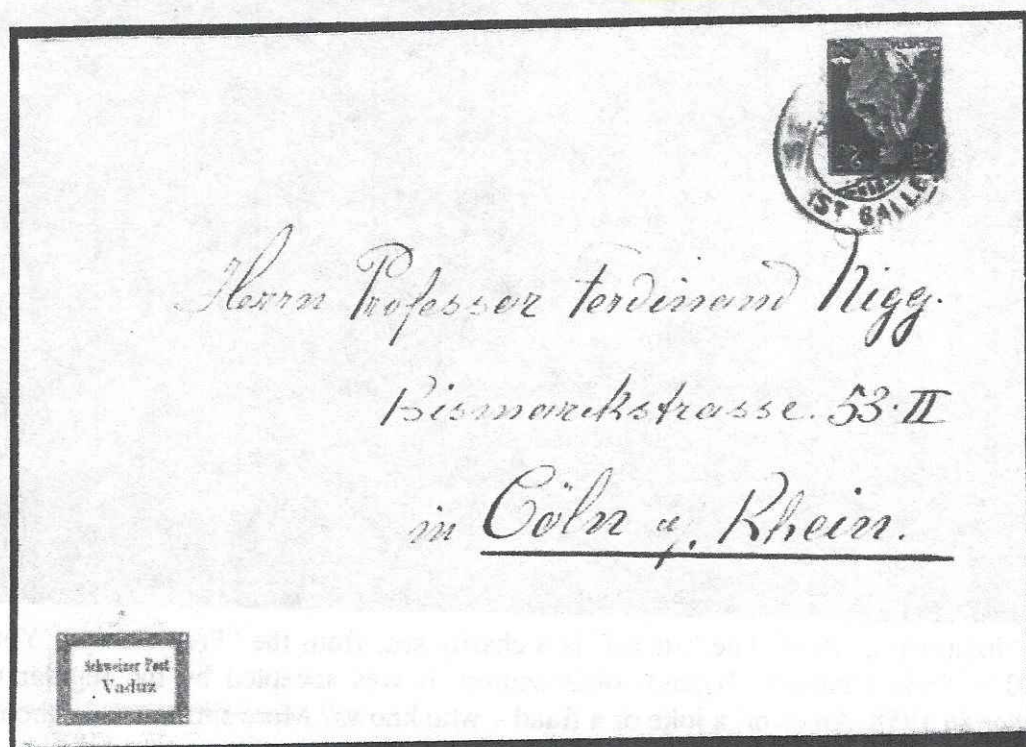 ST GALLE
Herrn Professor Ferdinand Nigg.
Bismarckstrasse. 53·II
in Cöln a. Rhein.
Schweizer Post
Vaduz